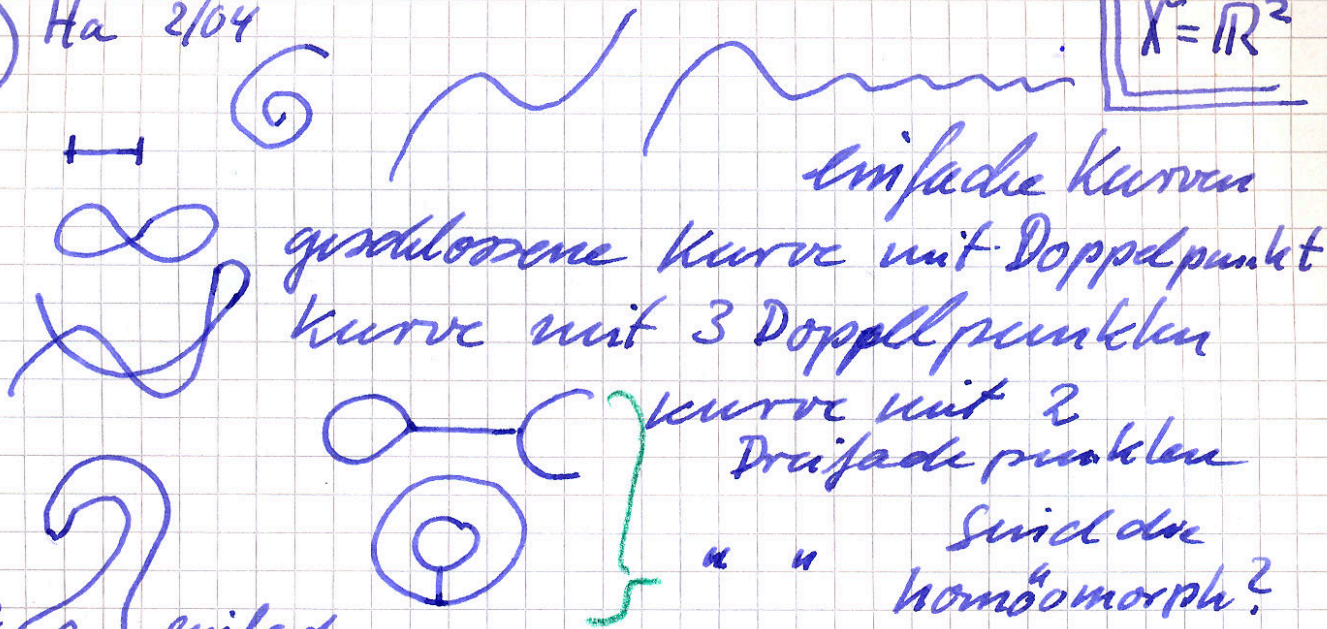 Ha 2/04
X = ℝ²
einfache Kurven
geschlossene Kurve mit Doppelpunkt
Kurve mit 3 Doppelpunkten
Kurve mit 2
Dreifachpunkten
" " Sind die
homöomorph?
einfach